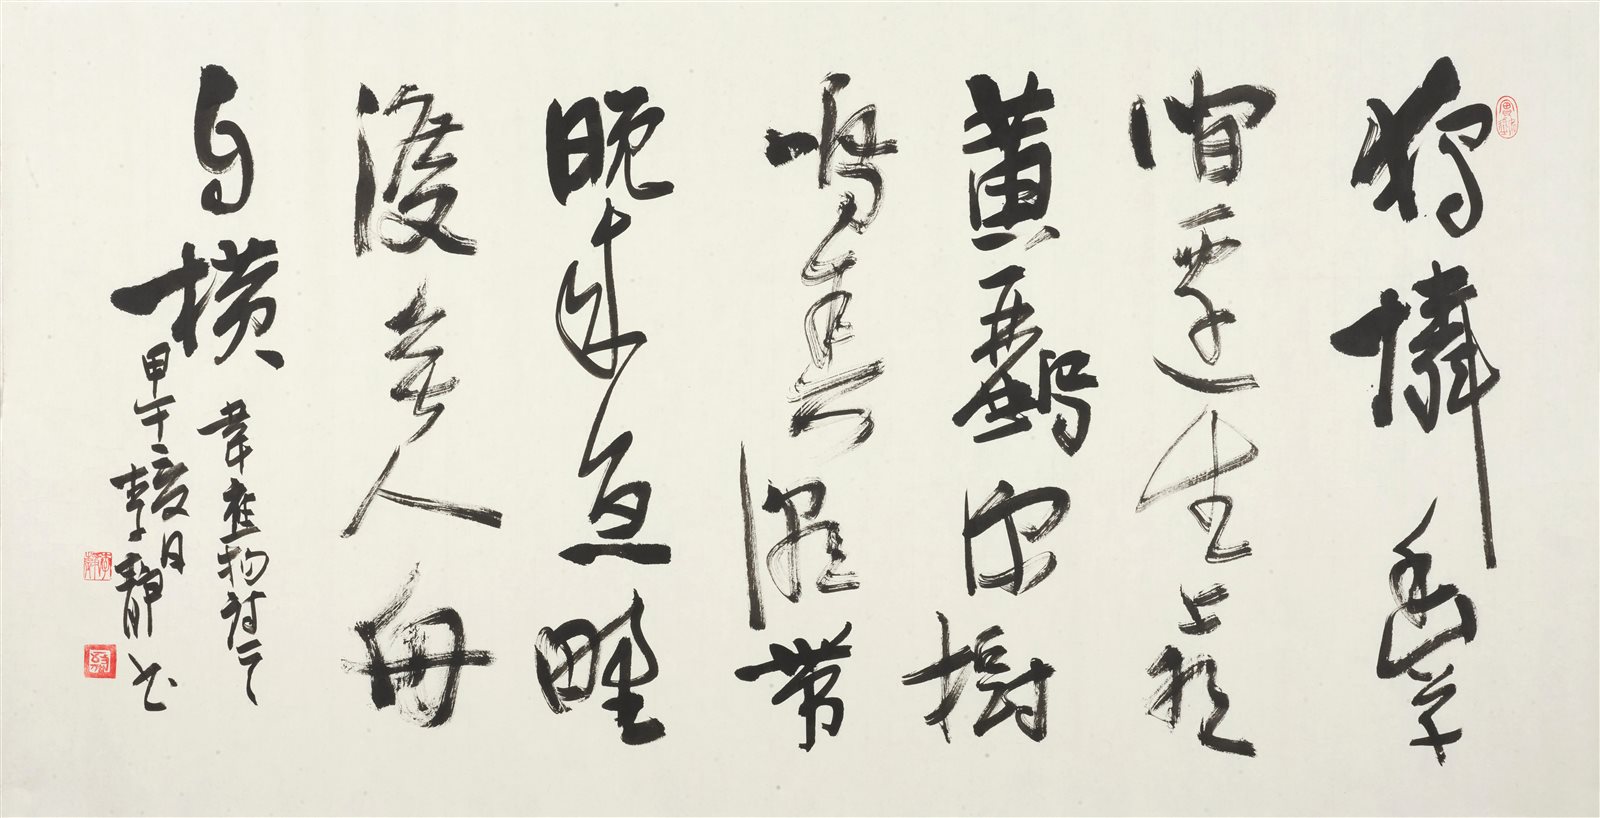 獨憐幽草
澗邊生上有
黃鸝深樹
鳴春潮帶
晚來急野
渡無人舟
自橫
韋應物詩
甲午夏月
李靜书